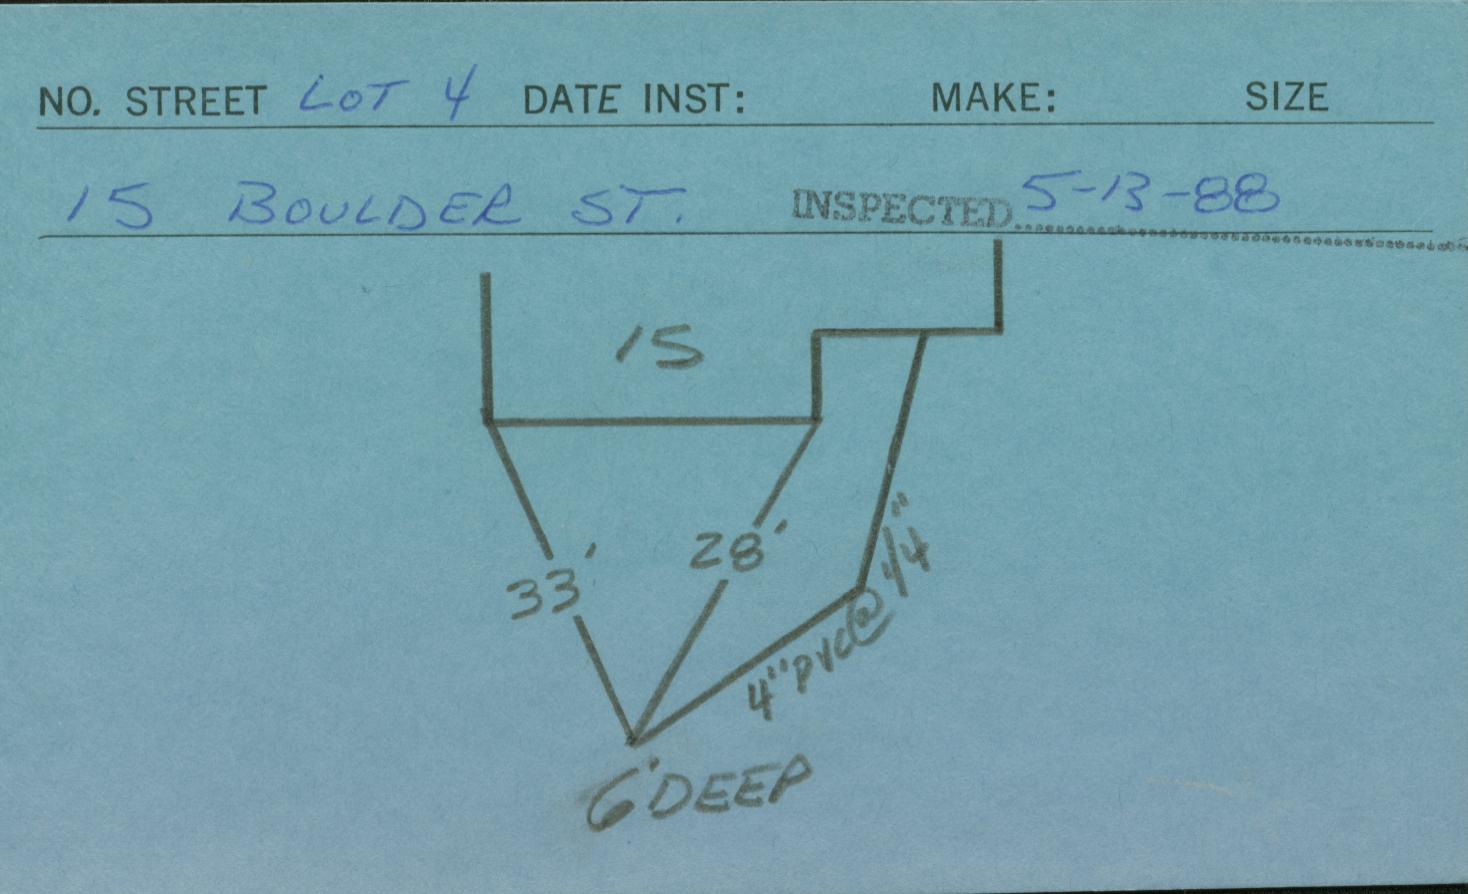 NO. STREET LOT 4 DATE INST: MAKE: SIZE
15 BOULDER ST. INSPECTED 5-13-88
15
28'
33'
4" PVC @ 1/4"
6' DEEP